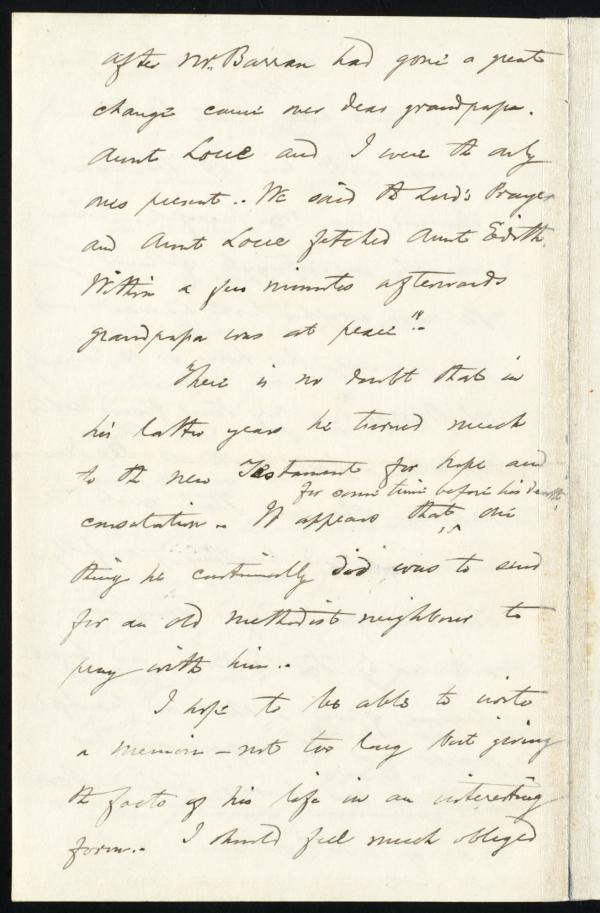 after Mr. Barran had gone a great
change came over dear grandpapa.
Aunt Loue and I were the only
ones present.. We said the Lord's Prayer
and Aunt Loue fetched Aunt Edith.
Within a few minutes afterwards
grandpapa was at peace"..
There is no doubt that in
his latter years he turned much
to the New Testament for hope and
for some time before his death,
consolation.. It appears that ^ one
thing he continually did was to send
for an old Methodist neighbour to
pray with him..
I hope to be able to write
a memoir - not too long but giving
the facts of his life in an interesting
form.. I should feel much obliged